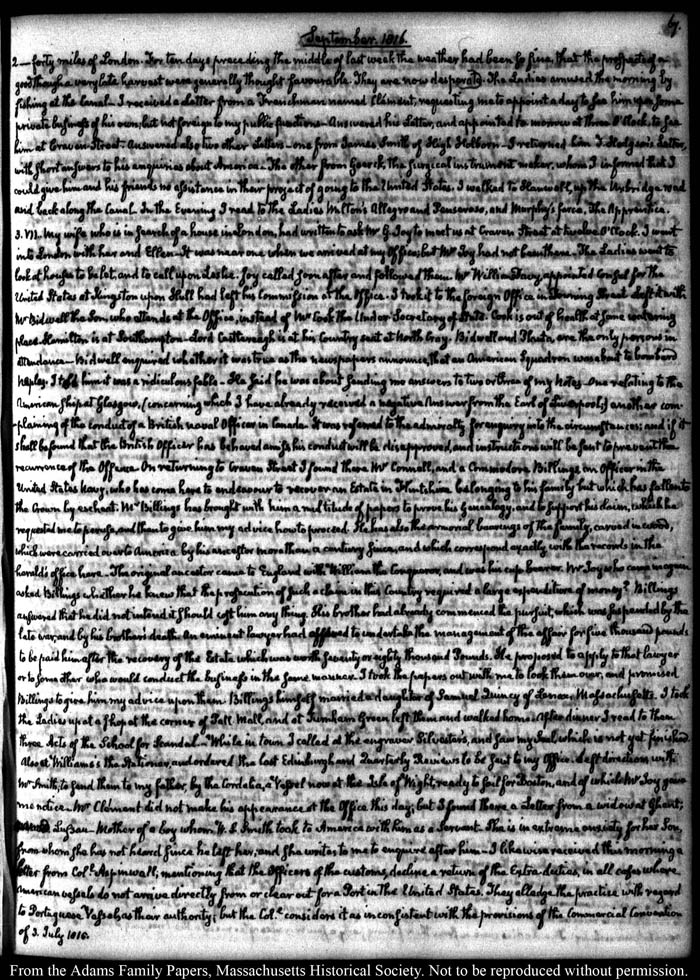 67.
September. 1816.
2 — forty miles of London. For ten days preceding the middle of last week the weather had been so fine, that the prospects of a
good though a very late harvest were generally thought favourable. They are now desperate. The Ladies amused the morning by
fishing at the Canal. I received a Letter from a Frenchman named Clément, requesting me to appoint a day to see him upon some
private business of his own, but not foreign to my public functions. Answered his Letter, and appointed to morrow at three O'Clock, to see
him at Craven Street. Answered also two other Letters — one from James Smith of High Holborn — I returned him J. Hodgson's Letter,
with short answers to his enquiries about America — The other from the surgical instrument maker, whom I informed that I
could give him and his friends no assistance in their project of going to the United States. I walked to Hanwell, up the Uxbridge road
and back along the Canal. In the Evening I read to the Ladies Milton's Allegro and Penseroso, and Murphy's farce, The Apprentice.
3. VII. My wife who is in search of a house in London, had written to ask Mr G. Joy to meet us at Craven Street at twelve O'Clock. I went
into London with her and Ellen — It was near one when we arrived at my Office, but Mr Joy had not been there. The Ladies went to
look at houses to be let, and to call upon Leslie. Joy called soon after and followed them. Mr William appointed Consul for the
United States at Kingston upon Hull had left his commission at the Office. I took it to the foreign Office in Downing Street & left it with
Mr Bidwell the Son, who attends at the Office, instead of Mr Cook the Under Secretary of State. Cook is out of health at some watering
place. Hamilton is at Southampton — Lord Castlereagh is at his Country seat at North Cray. Bidwell and Planta, are the only persons in
attendance — Bidwell enquired whether it was true as the newspapers announce, that an American Squadron was about to bombard
Naples. I told him it was a ridiculous fable — He said he was about sending me answers to two or three of my Notes — One relating to the
American Ship at Glasgow, (concerning which I have already received a negative Answer from the Earl of Liverpool;) another com-
plaining of the conduct of a British naval Officer in Canada. It was referred to the admiralty for enquiry into the circumstances: and if it
shall be found that the British Officer has behaved amiss his conduct will be disapproved, and instructions will be sent to prevent the
recurrence of the Offence. On returning to Craven Street I found there Mr Connell, and a Commodore Billings an Officer in the
United States Navy, who has come here to endeavour to recover an Estate in Flintshire belonging to his family but which has fallen to
the Crown by escheat. Mr Billings has brought with him a multitude of papers to prove his Genealogy, and to support his claim, which he
requested me to peruse, and then to give him my advice how to proceed. He has also the armorial bearings of the family, carved in wood,
which were carried over to America by his ancestor more than a century since, and which correspond exactly with the records in the
herald's office here — The original ancestor came to England with William the Conqueror, and was his cup bearer. Mr Joy who came in again
asked Billings whether he knew that the prosecution of such a claim in this Country required a large expenditure of money? Billings
answered that he did not intend it should cost him any thing. His brother had already commenced the pursuit, which was suspended by the
late war, and by his brother's death. An eminent lawyer had offered to undertake the management of the affair for five thousand pounds
to be paid him after the recovery of the Estate which was worth seventy or eighty thousand Pounds. He proposed to apply to that lawyer
or to some other who would conduct the business in the same manner. I took the papers out with me to look them over, and promised
Billings to give him my advice upon them. Billings himself married a daughter of Samuel Quincy of Lenox, Massachusetts. I took
the Ladies up at a shop at the corner of Pall Mall, and at Turnham Green left them and walked home. After dinner I read to them
three Acts of the School for Scandal — While in town I called at the engraver Silvester's, and saw my Seal which is not yet finished.
Also at Williams's the Stationer, and ordered the last Edinburgh and Quarterly Reviews to be sent to my Office. Left directions with
Mr Smith, to send them to my father, by the Cordelia, a Vessel now at the Isle of Wight, ready to sail for Boston, and of which Mr Joy gave
me notice. Mr Clément did not make his appearance at the Office this day; but I found there a Letter from a widow at Ghent;
Lussan — Mother of a boy whom W. S. Smith took to America with him as a Servant. She is in extreme anxiety for her Son,
from whom she has not heard since he left her, and she writes to me to enquire after him — I likewise received this morning a
letter from Col. Aspinwall; mentioning that the Officers of the customs, decline a return of the Extra-duties, in all cases where
American vessels do not arrive directly from or clear out for a Port in the United States. They alledge the practise with regard
to Portuguese Vessels, as their authority; but the Col. considers it as inconsistent with the provisions of the Commercial Convention
of 3. July 1815.
From the Adams Family Papers, Massachusetts Historical Society. Not to be reproduced without permission.